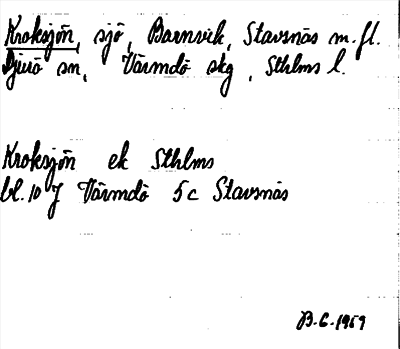 Kroksjön, sjö, Barnvik, Stavsnäs m.fl.
Djurö sn, Värmdö skg, Sthlms l.
Kroksjön ek Sthlms
bl. 10 J Värmdö 5c Stavsnäs
B.G. 1969